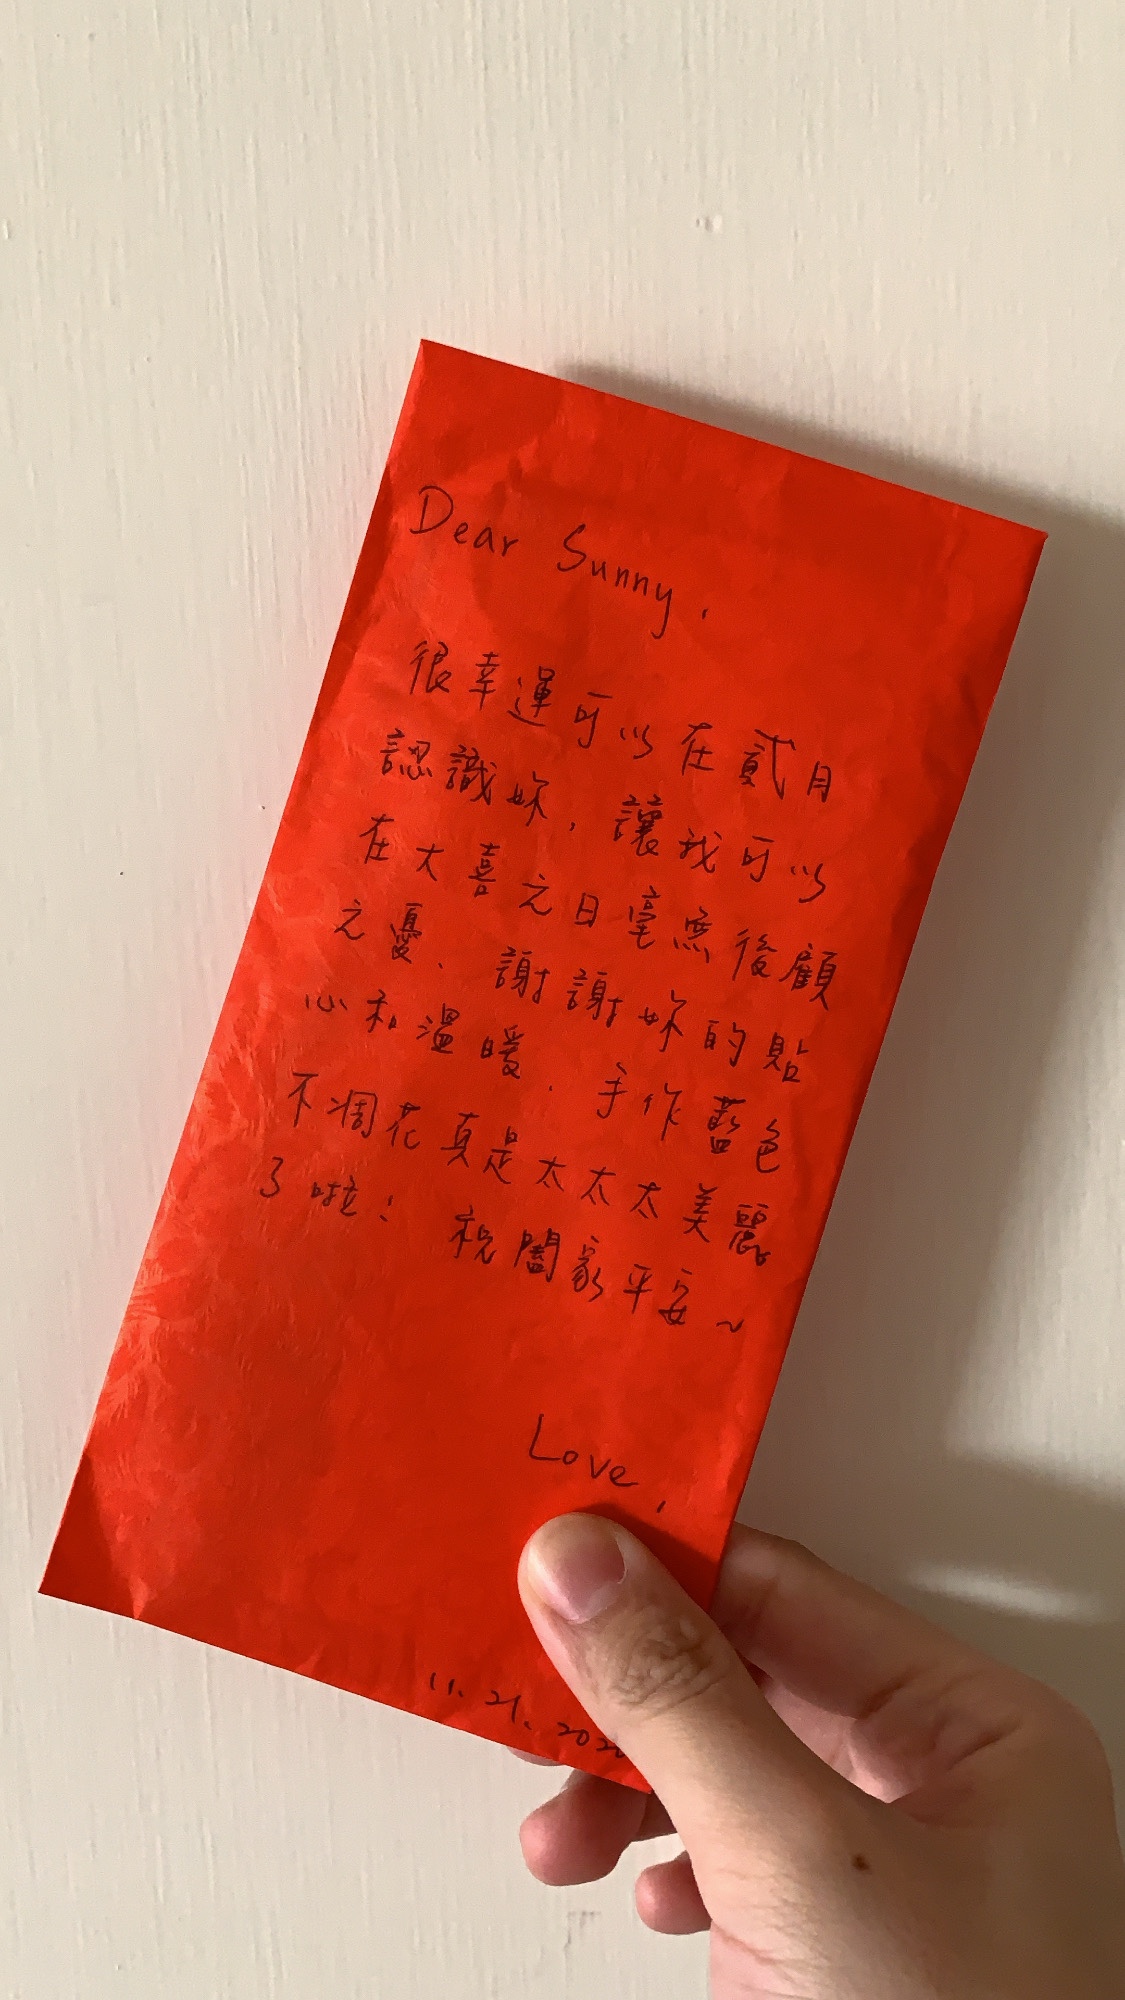 Dear Sunny,
很幸運可以在貳月
認識妳,讓我可以
在大喜之日毫無後顧
之憂、謝謝妳的貼
心和溫暖.手作藍色
不凋花真是太太太美麗
了啦!祝闔家平安~
Love,
11.21.2020